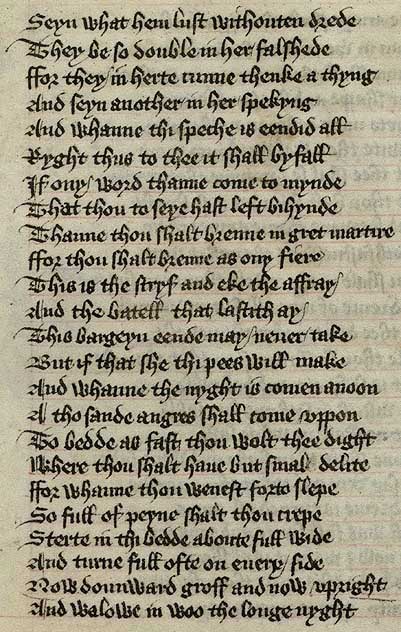 Seyn what hem lust withouten drede
They be so double in her falshede
ffor they / in herte cunne thenke a thyng
And seyn another in her spekyng
And whanne thi speche is eendid all
Ryght thus to thee it shall byfall
If ony / word thanne come to mynde
That thou to seye hast left bihynde
Thanne thou shalt brenne in gret martire
ffor thou shalt brenne as ony fiere
This is the stryf and eke the affray /
And the batell that lastith ay /
This bargeyn eende may / neuer take
But if that she thi pees will make
And whanne the nyght is comen anoon
A thosande angres shall come vppon
To bedde as fast thou wolt thee dight
Where thou shalt haue but smal delite
ffor whanne thou wenest forto slepe
So full of peyne shalt thou crepe
Sterte in thi bedde aboute full wide
And turne full ofte on euery / side
Now dounward groff and now vpright
And walowe in woo the longe nyght